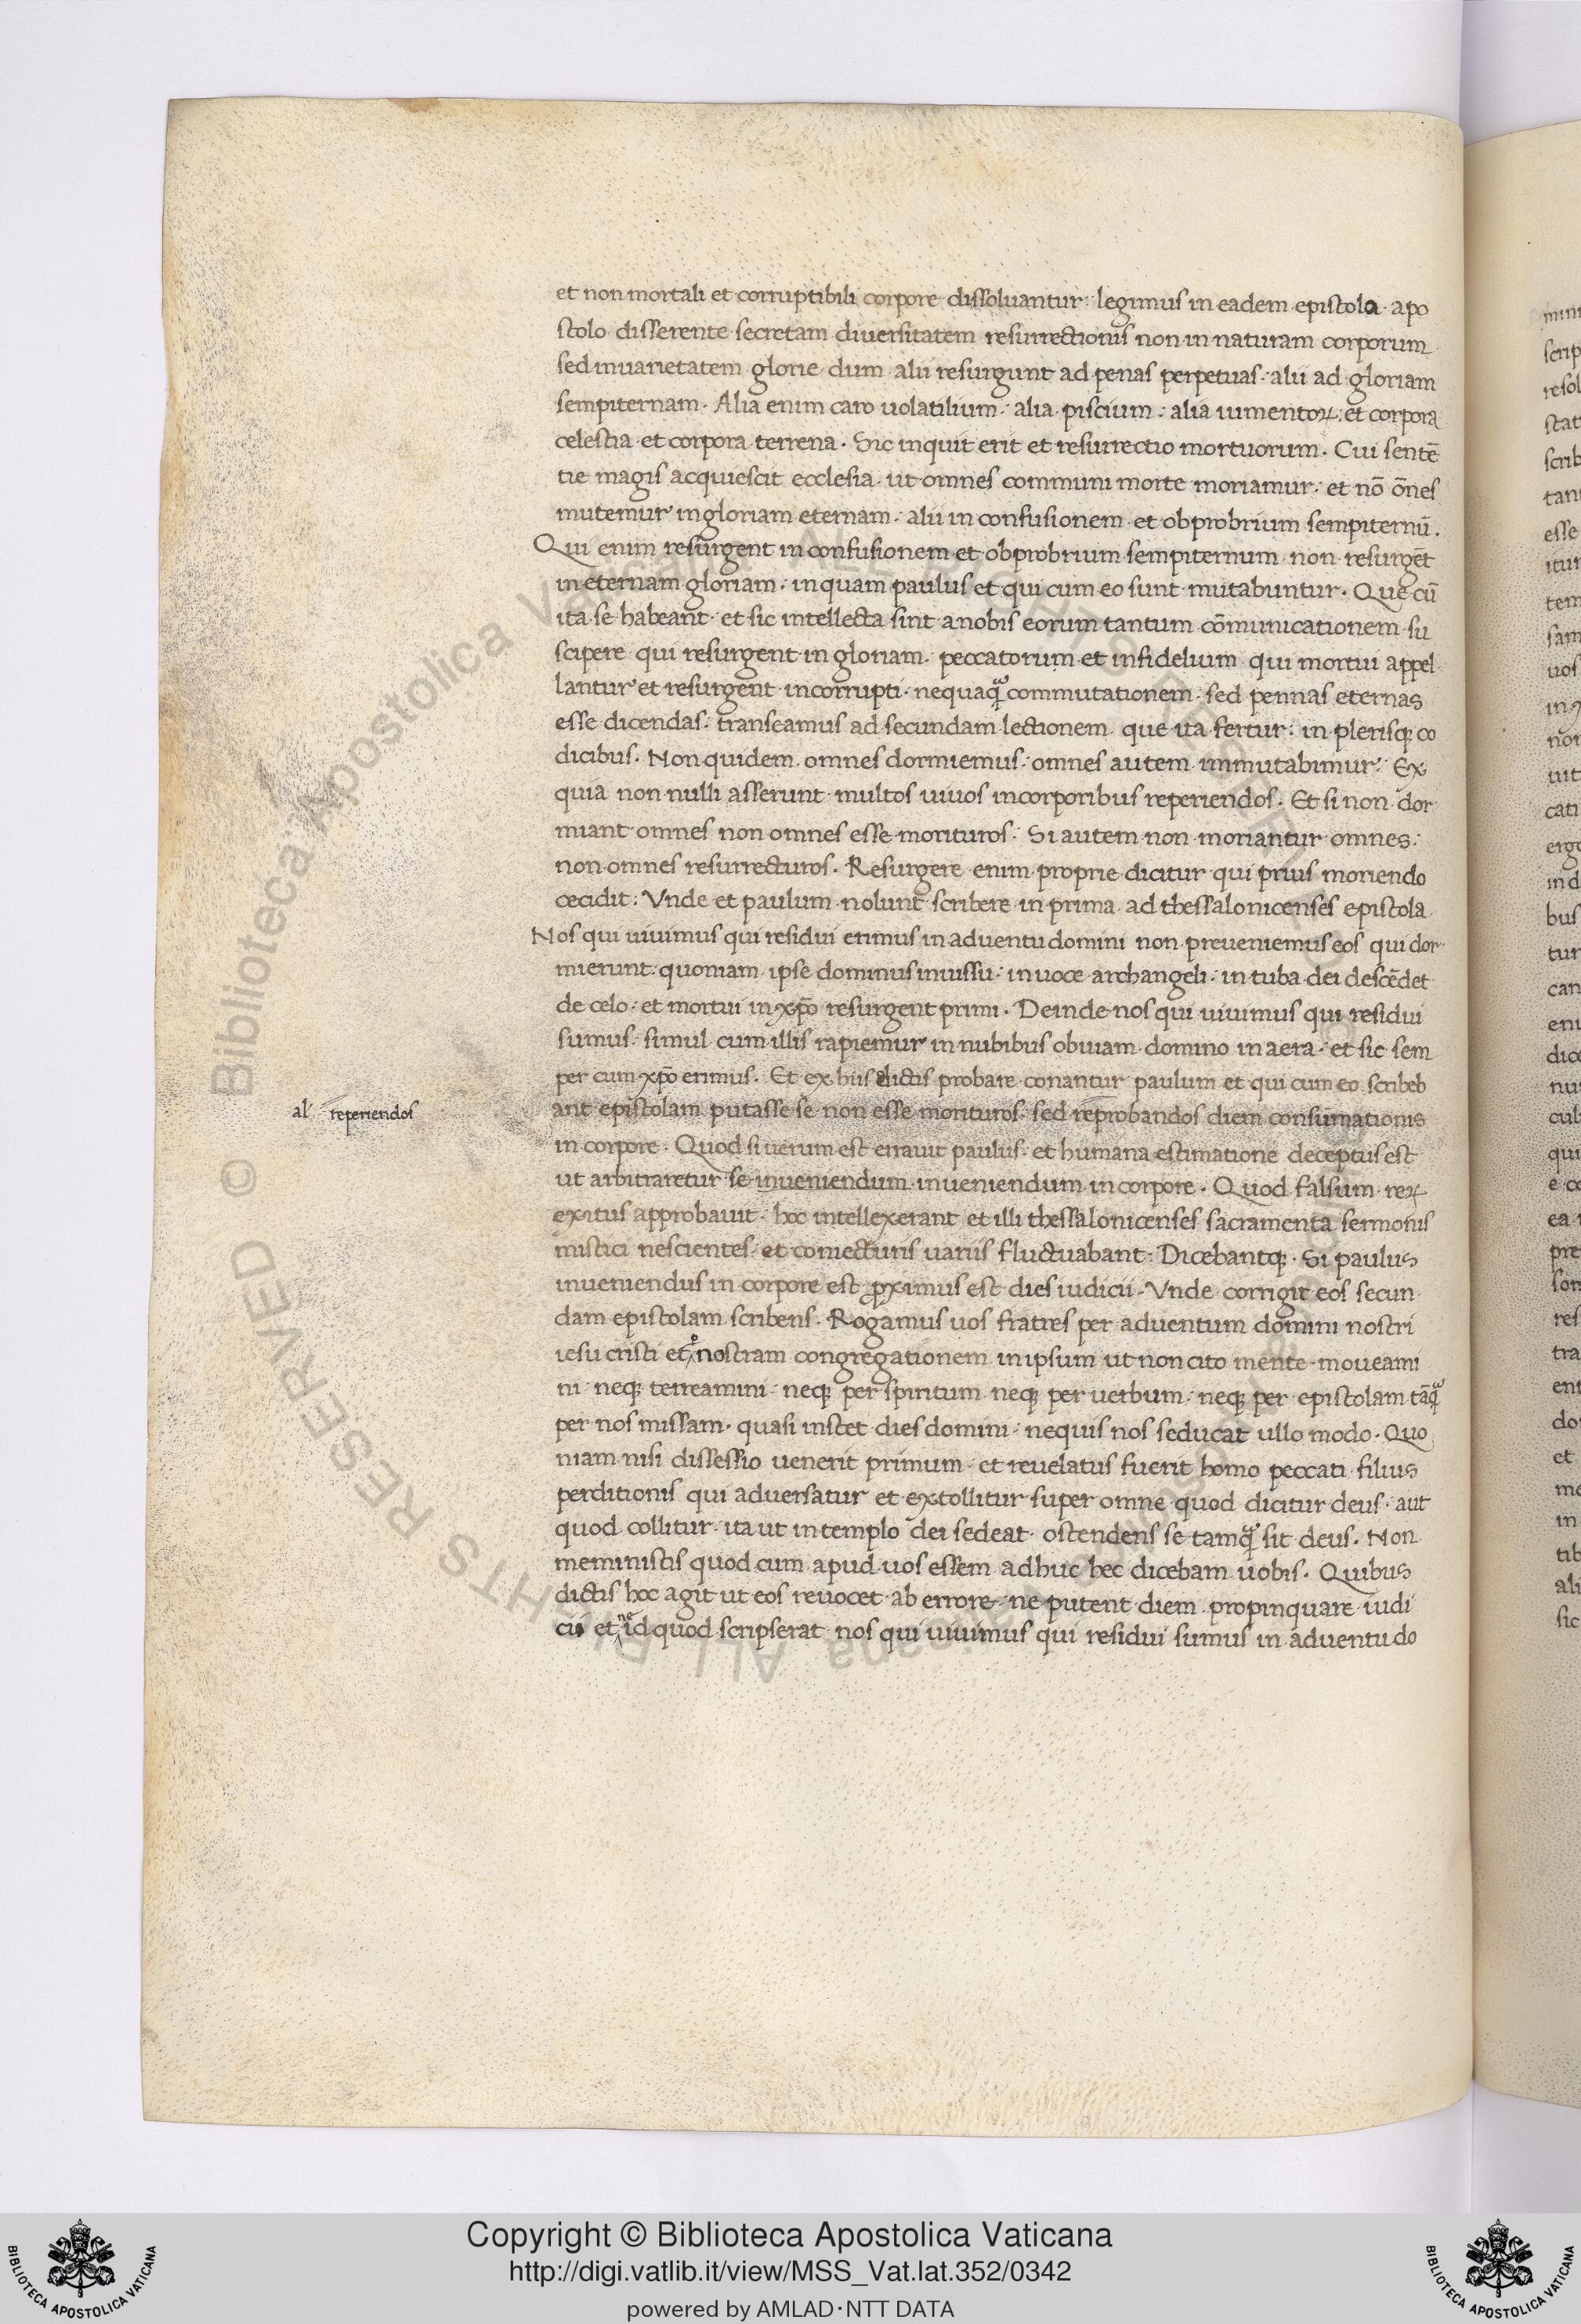 et non mortali et corruptibili corpore dissoluantur: legimus in eadem epistola apo
stolo disserente secretam diversitatem resurrectionis non in naturam corporum
sed in uarietatem glorie dum alii resurgunt ad penas perpetuas: alii ad gloriam
sempiternam. Alia enim caro uolatilium: alia piscium: alia iumentoꝝ: et corpora
celestia et corpora terrena. Sic inquit erit et resurrectio mortuorum. Cui sentē
tie magis acquiescit ecclesia ut omnes communi morte moriamur: et nō ōnes
mutemur in gloriam eternam: alii in confusionem et obprobrium sempiternū.
Qui enim resurgent in confusionem et obprobrium sempiternum non resurgēt
in eternam gloriam: in quam paulus et qui cum eo sunt mutabuntur. Que cū
ita se habeant et sic intellecta sint a nobis eorum tantum cōmunicationem su
scipere qui resurgent in gloriam: peccatorum et infidelium qui mortui appel
lantur et resurgent incorrupti nequaqᷓ commutationem sed pennas eternas
esse dicendas: transeamus ad secundam lectionem que ita fertur: in plerisqꝫ co
dicibus. Non quidem omnes dormiemus: omnes autem immutabimur: Ex
quia non nulli asserunt multos uiuos in corporibus reperiendos. Et si non dor
miant omnes non omnes esse morituros: Si autem non moriantur omnes:
non omnes resurrecturos. Resurgere enim proprie dicitur qui prius moriendo
cecidit: Vnde et paulum nolunt scribere in prima ad thessalonicenses epistola
Nos qui uiuimus qui residui erimus in adventu domini non preveniemus eos qui dor
mierunt: quoniam ipse dominus in iussu: in uoce archangeli: in tuba dei descēdet
de celo: et mortui in xp̄o resurgent primi. Deinde nos qui uiuimus qui residui
sumus: simul cum illis rapiemur in nubibus obuiam domino in aera: et sic sem
per cum xp̄o erimus. Et ex hiis dictis probare conantur paulum et qui cum eo scribeb
al' reperiendos
ant epistolam putasse se non esse morituros: sed reprobandos diem consumationis
in corpore. Quod si uerum est erravit paulus: et humana estimatione deceptus est
ut arbitraretur se inueniendum inueniendum in corpore. Quod falsum reꝝ
exitus approbavit: hoc intellexerant et illi thessalonicenses sacramenta sermonis
mistici nescientes: et coniecturis uariis fluctuabant: Dicebantqꝫ. Si paulus
inueniendus in corpore est ꝓximus est dies iudicii. Vnde corrigit eos secun
dam epistolam scribens. Rogamus uos fratres per adventum domini nostri
iesu cristi et nostram congregationem in ipsum ut non cito mente moveami
ni neqꝫ terreamini neqꝫ per spiritum neqꝫ per uerbum: neqꝫ per epistolam tāqᷓ
per nos missam quasi instet dies domini: nequis nos seducat ullo modo. Quo
niam nisi dissessio uenerit primum et revelatus fuerit homo peccati filius
perditionis qui adversatur et extollitur super omne quod dicitur deus aut
quod collitur ita ut in templo dei sedeat ostendens se tamqᷓ sit deus. Non
meministis quod cum apud uos essem adhuc hec dicebam uobis. Quibus
dictis hoc agit ut eos reuocet ab errore ne putent diem propinquare iudi
cii et ne id quod scripserat nos qui uiuimus qui residui sumus in adventu do
Copyright © Biblioteca Apostolica Vaticana
http://digi.vatlib.it/view/MSS_Vat.lat.352/0342
powered by AMLAD·NTT DATA